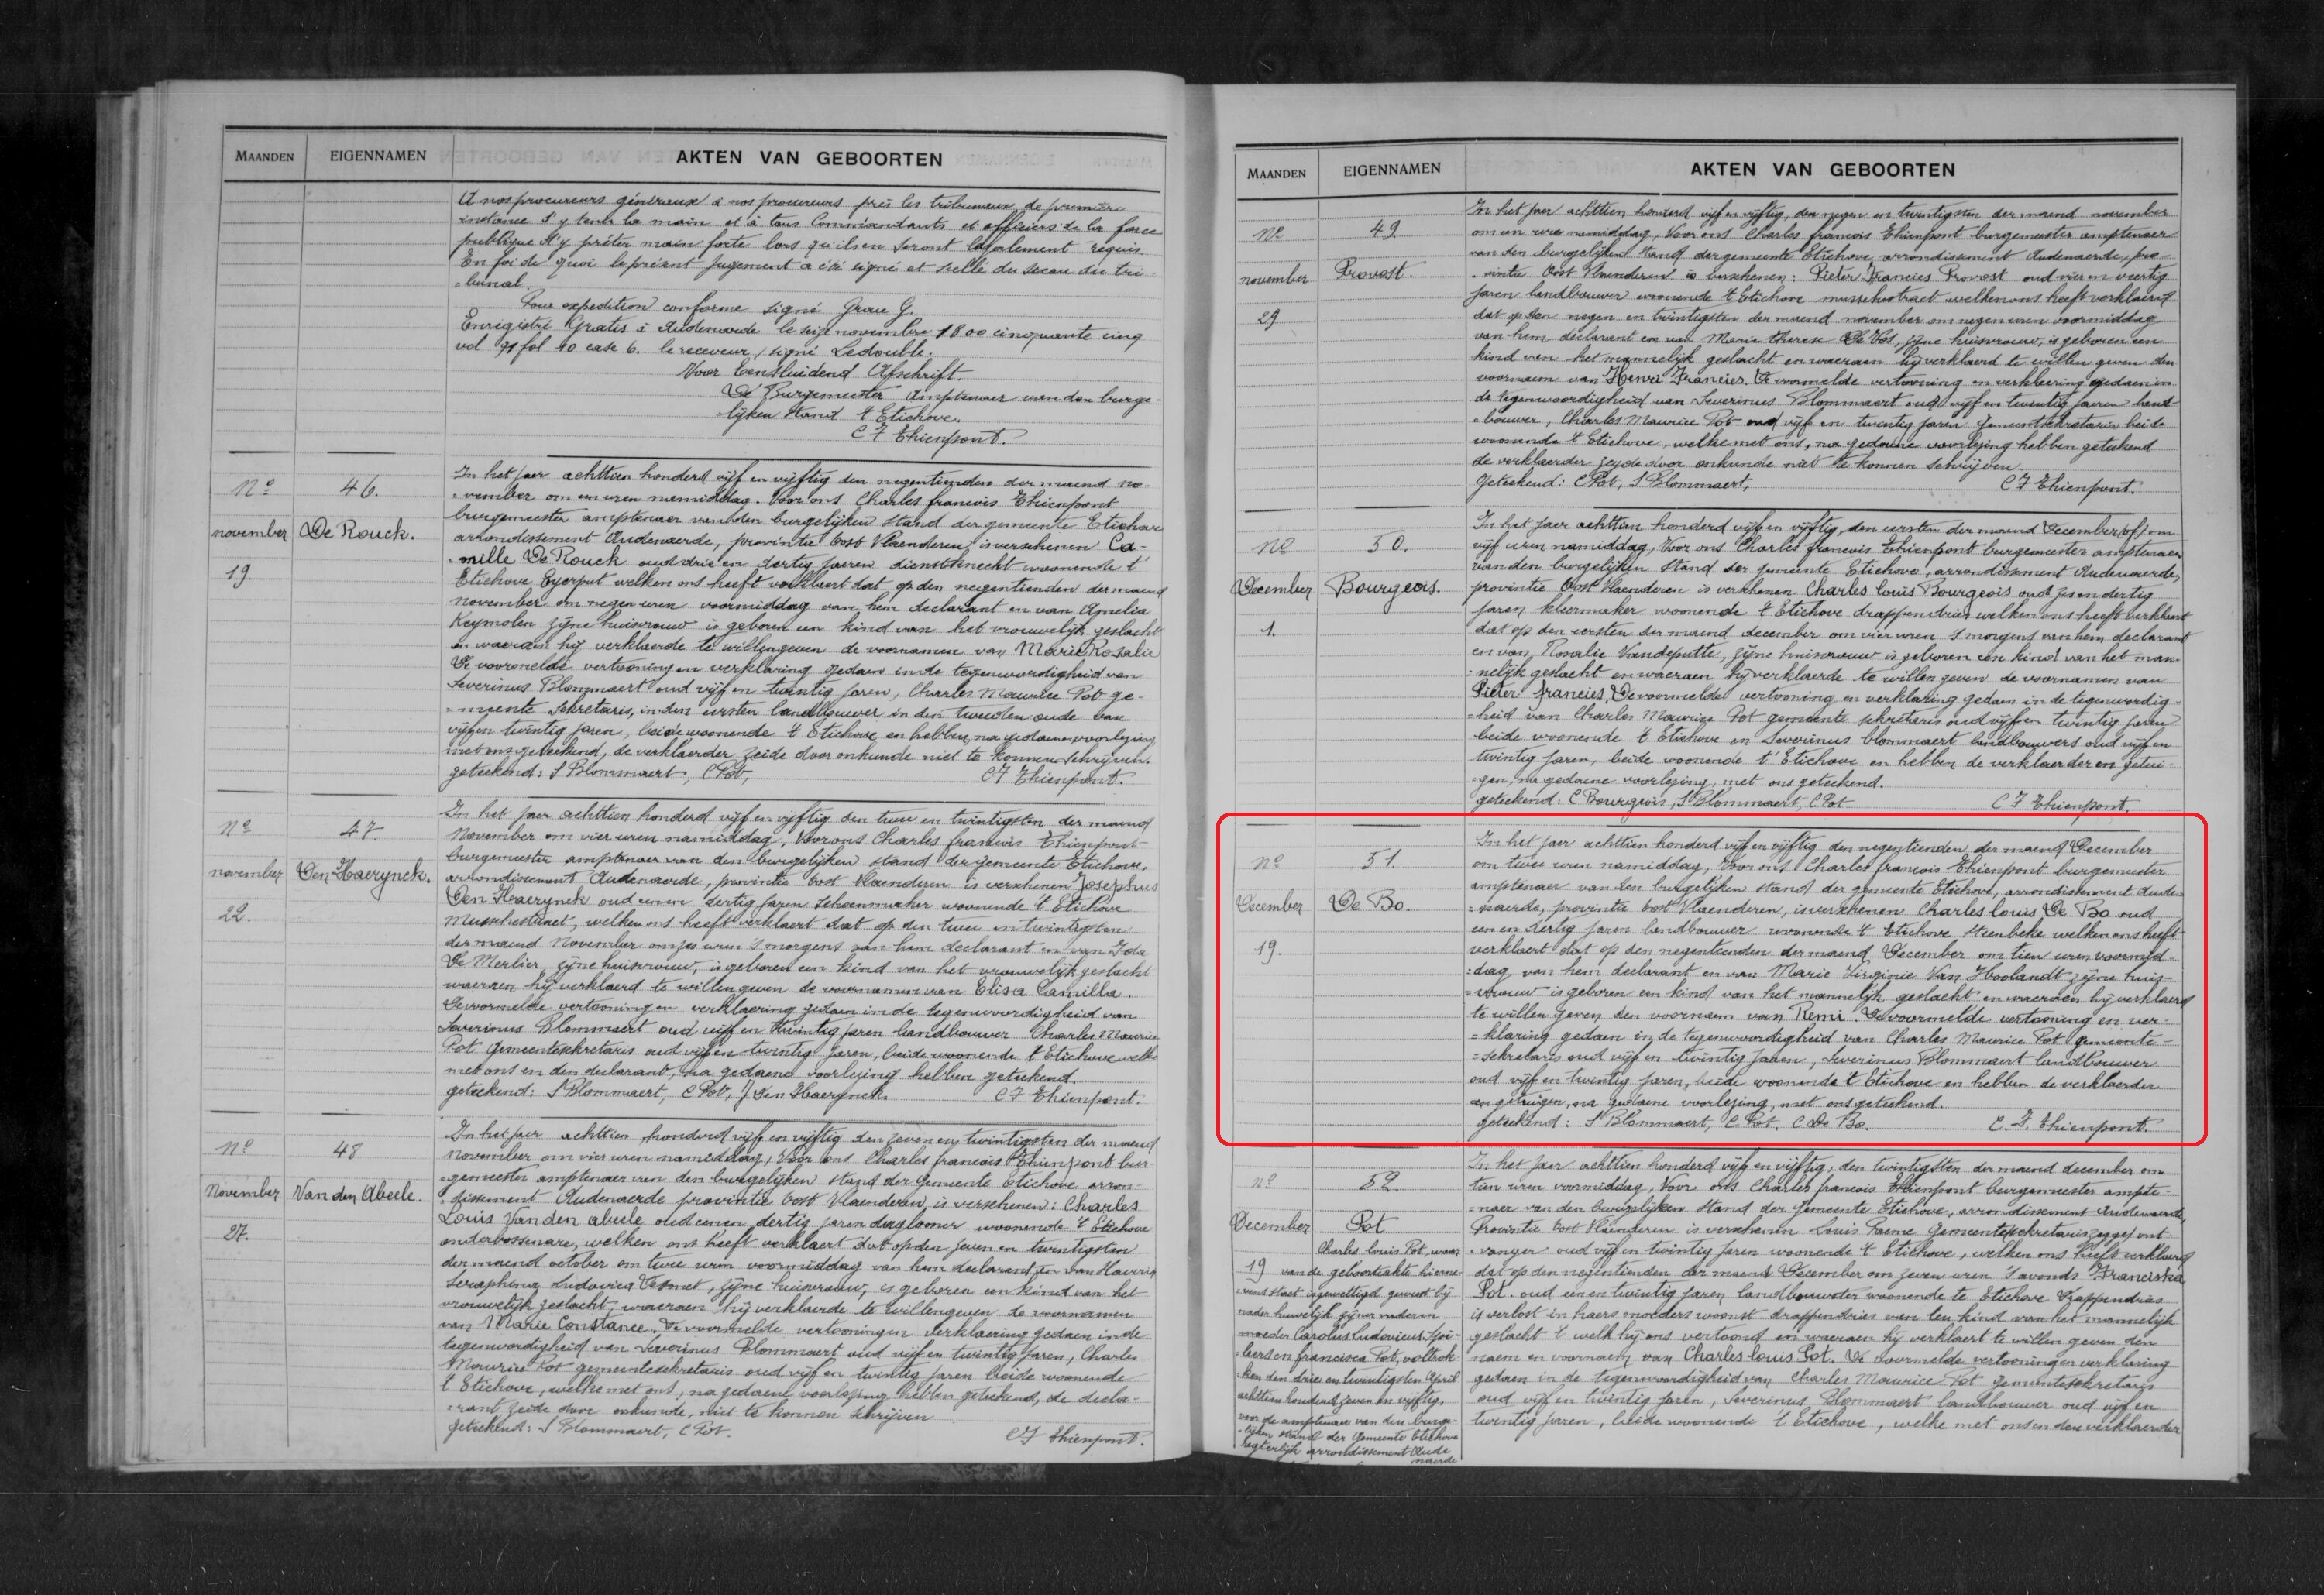 MAANDEN EIGENNAMEN AKTEN VAN GEBOORTEN
A nos procureurs généraux à nos procureurs près les tribunaux de première
instance d'y tenir la main et à tous Commandants et officiers de la force
publique d'y prêter main forte lors qu'ils en seront légalement requis.
En foi de quoi le présent jugement a été signé et scellé du sceau du tri-
-bunal.
Pour expedition conforme signé Grau G.
Enregistré Gratis à Audenarde le six novembre 1800 cinquante cinq
vol 71 fol 40 case 6. le receveur, signé Ledouble.
Voor Eensluidend Afschrift.
De Burgemeester Amptenaer van den burge-
-lijken stand t'Etichove.
C F Thienpont.
No 46.
november De Rouck.
19.
In het jaer achttien honderd vijf en vijftig den negentienden der maend no-
-vember om een uren namiddag. Voor ons Charles francois Thienpont
burgemeester amptenaer van den burgelijken stand der gemeente Etichove
arrondissement Audenaerde, provintie Oost Vlaenderen, is verschenen Ca-
-mille De Rouck oud drie en dertig jaeren dienstknecht woonende t'
Etichove Eyerput welken ons heeft verklaert dat op den negentienden der maend
november om negen uren voormiddag van hem declarant en van Amelia
Keymolen zijne huisvrouw is geboren een kind van het vrouwelijk geslacht
en waeraen hij verklaerde te willen geven de voornamen van Marie Rosalie
De voormelde vertooning en verklaring gedaen in de tegenwoordigheid van
Severinus Blommaert oud vijf en twintig jaren, Charles Maurice Pot ge-
-meente sekretaris, in den eersten landbouwer in den tweeden oude van
vijf en twintig jaren, beide woonende t'Etichove en hebben, na gedaene voorlezing
met ons geteekend, de verklaerder zeide door onkunde niet te konnen schrijven.
geteekend: S Blommaert, C Pot, C F Thienpont.
No 47.
november Den Haerynck.
22.
In het jaer achttien honderd vijf en vijftig den twee en twintigsten der maend
November om vier uren namiddag, Voor ons Charles francois Thienpont
burgemeester amptenaer van den burgelijken stand der gemeente Etichove,
arrondissement Audenaerde, provintie Oost Vlaenderen is verschenen Josephus
Den Haerynck oud eenen dertig jaren schoenmaker woonende t'Etichove
Musschestraet, welken ons heeft verklaert dat op den twee en twintigsten
der maend November om zes uren s'morgens van hem declarant en van Ida
De Merlier, zijne huisvrouw, is geboren een kind van het vrouwelijk geslacht
waeraen hij verklaerd te willen geven de voornamen van Elisa Camilla.
De voormelde vertooning en verklaering gedaen in de tegenwoordigheid van
Severinus Blommaert oud vijf en twintig jaren landbouwer Charles Maurice
Pot Gemeentesekretaris oud vijf en twintig jaren, beide woonende t'Etichove welke
met ons en den declarant, na gedaene voorlezing hebben geteekend.
geteekend: S Blommaert, C Pot, J Den Haerynck. C F Thienpont.
No 48
November Van den Abeele.
27.
In het jaer achttien honderd vijf en vijftig den zeven en twintigsten der maend
November om vier uren namiddag, Voor ons Charles francois Thienpont bur-
-gemeester amptenaer van den burgelijken stand der Gemeente Etichove arron-
-dissement Audenaerde provintie Oost Vlaenderen, is verschenen: Charles
Louis Van den abeele oud eenen dertig jaren daglooner woonende t'Etichove
onderbossenare, welken ons heeft verklaert dat op den zeven en twintigsten
der maend october om twee uren voormiddag van hem declarant en van
Seraphina Ludovica Desmet, zijne huisvrouw, is geboren een kind van het
vrouwelijk geslacht, waeraen hij verklaerde te willen geven de voornamen
van Marie Constance. De voormelde vertooning en verklaering gedaen in de
tegenwoordigheid van Severinus Blommaert oud vijf en twintig jaren, Charles
Maurice Pot gemeentesekretaris oud vijf en twintig jaren beide woonende
t'Etichove, welke met ons, na gedaene voorlezing hebben geteekend, de decla-
-rant zeide door onkunde, niet te konnen schrijven
geteekend: S Blommaert, C Pot. C F Thienpont.
MAANDEN EIGENNAMEN AKTEN VAN GEBOORTEN
No 49.
november Provost.
29
In het jaer achttien honderd vijf en vijftig, den negen en twintigsten der maend november
om een uren namiddag, Voor ons Charles francois Thienpont burgemeester amptenaer
van den burgelijken stand der gemeente Etichove arrondissement Audenaerde, pro-
-vintie Oost Vlaenderen is verschenen: Pieter Francies Provost oud vier en veertig
jaren landbouwer woonende t'Etichove musschestraet welken ons heeft verklaerd
dat op den negen en twintigsten der maend november om negen uren voormiddag
van hem declarant en van Marie therese De Vos, zijne huisvrouw, is geboren een
kind van het mannelijk geslacht en waeraen hij verklaerd te willen geven den
voornaem van Henri Francies. De voormelde vertooning en verklaering gedaen in
de tegenwoordigheid van Severinus Blommaert oud vijf en twintig jaren land-
-bouwer, Charles Maurice Pot oud vijf en twintig jaren Gemeentsekretaris beide
woonende t'Etichove, welke met ons, na gedaene voorlezing hebben geteekend
de verklaerder zeyde door onkunde niet te konnen schrijven
Geteekend: C Pot, S Blommaert, C F Thienpont.
No 50.
December Bourgeois.
1.
In het jaer achttien honderd vijf en vijftig, den eersten der maend December om
vijf uren namiddag, Voor ons Charles francois Thienpont burgemeester amptenaer
van den burgelijken stand der gemeente Etichove, arrondissement Audenaerde,
provintie Oost Vlaenderen is verschenen Charles Louis Bourgeois oud zes en dertig
jaren kleermaker woonende t'Etichove drappendries welken ons heeft verklaert
dat op den eersten der maend december om vier uren s'morgens van hem declarant
en van Rosalie Vandeputte, zijne huisvrouw is geboren een kind van het man-
-nelijk geslacht en waeraen hij verklaerde te willen geven de voornamen van
Pieter francies, De voormelde vertooning en verklaring gedaen in de tegenwoordig-
-heid van Charles Maurice Pot gemeente sekretaris oud vijf en twintig jaren
beide woonende t'Etichove en Severinus blommaert landbouwers oud vijf en
twintig jaren, beide woonende t'Etichove en hebben de verklaerder en getui-
-gen, na gedaene voorlezing, met ons geteekend.
geteekend: C Bourgeois, S Blommaert, C Pot C F Thienpont.
No 51.
December De Bo.
19.
In het jaer achttien honderd vijf en vijftig den negentienden der maend December
om twee uren namiddag, Voor ons Charles françois Thienpont burgemeester
amptenaer van den burgelijken stand der gemeente Etichove, arrondissement Aude-
-naerde, provintie Oost Vlaenderen, is verschenen Charles louis De Bo oud
een en dertig jaren landbouwer woonende t'Etichove Steenbeke welken ons heeft
verklaert dat op den negentienden der maend December om tien uren voormid-
-dag van hem declarant en van Marie Virginie Van Hoolandt zijne huis-
-vrouw is geboren een kind van het mannelijk geslacht en waeraen hij verklaerd
te willen geven den voornaem van Remi. De voormelde vertooning en ver-
-klaring gedaen in de tegenwoordigheid van Charles Maurice Pot gemeente-
-sekretaris oud vijf en twintig jaren, Severinus Blommaert landbouwer
oud vijf en twintig jaren, beide woonende t'Etichove en hebben de verklaerder
en getuigen, na gedaene voorlezing, met ons geteekend.
geteekend: S Blommaert, C Pot, C De Bo. C. F. Thienpont.
No 52.
December Pot
19
Charles louis Pot, waer
van de geboorteakte hierne-
-vens staet is gewettigd geweest bij
nader huwelijk zijner vader en
moeder Carolus Ludovicus
en francisca Pot, voltrok-
-ken den drie en twintigsten April
achttien honderd zeven en vijftig,
voor de amptenaer van den burge-
-lijken stand der Gemeente Etichove
regterlijk arrondissement Aude
naerde
In het jaer achttien honderd vijf en vijftig, den twintigsten der maend december om
tien uren voormiddag, Voor ons Charles francois Thienpont burgemeester ampte-
-naer van den burgelijken stand der Gemeente Etichove, arrondissement Audenaerde,
Provintie Oost Vlaenderen is verschenen Louis Paeme Gemeentesekretaris zegge ont-
-vanger oud vijf en twintig jaren woonende t'Etichove, welken ons heeft verklaerd
dat op den negentienden der maend December om zeven uren s'avonds Franciska
Pot. oud een en twintig jaren landbouwster woonende te Etichove Drappendries
is verlost in haers moeders woonst drappendries van een kind van het mannelijk
geslacht t welk hij ons vertoond en waeraen hij verklaert te willen geven den
naem en voornaem van Charles louis Pot. De voormelde vertooning en verklaring
gedaen in de tegenwoordigheid van Charles Maurice Pot gemeentesekretaris
oud vijf en twintig jaren, Severinus Blommaert landbouwer oud vijf en
twintig jaren, beide woonende t'Etichove, welke met ons en den verklaerder